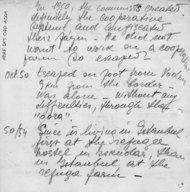 In 1950, the communists created
definitely the cooperative
system and confiscated
their farm. He did not
want to work on a coop
farm (so escaped)
Oct 50 Escaped on foot from
from the border
was alone. Without any
difficulties, through that
"door".
50/54 Since is living in Istanbul
first at the refugee
hostel in then
in Istanbul at the
refuge farm